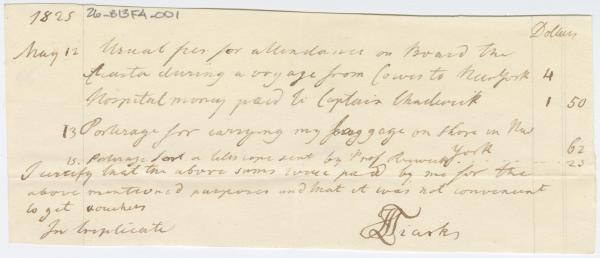 1825 26-B13FA-001
Dollars
May 12 Usual fees for attendance on Board the
Acasta during a voyage from Cowes to New York 4
Hospital money paid to Captain Chadwick 1 50
13 Porterage for carrying my baggage on shore in New
York 62
15. Porterage for a telescope sent by Prof Renwick 25
I certify that the above sums were paid by me for the
above mentioned purposes and that it was not convenient
to get vouchers
In triplicate Tiarks